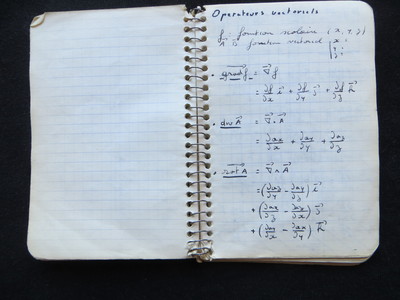 Operateurs vectoriels
f : fonction scalaire (x, y, z)
A : fonction vectoriel
• grad f = ∇⃗ f
= ∂f/∂x i⃗ + ∂f/∂y j⃗ + ∂f/∂z k⃗
• div A⃗ = ∇⃗ . A⃗
= ∂ax/∂x + ∂ay/∂y + ∂az/∂z
• rot A⃗ = ∇⃗ ∧ A⃗
= (∂az/∂y - ∂ay/∂z) i⃗
+ (∂ax/∂z - ∂az/∂x) j⃗
+ (∂ay/∂x - ∂ax/∂y) k⃗